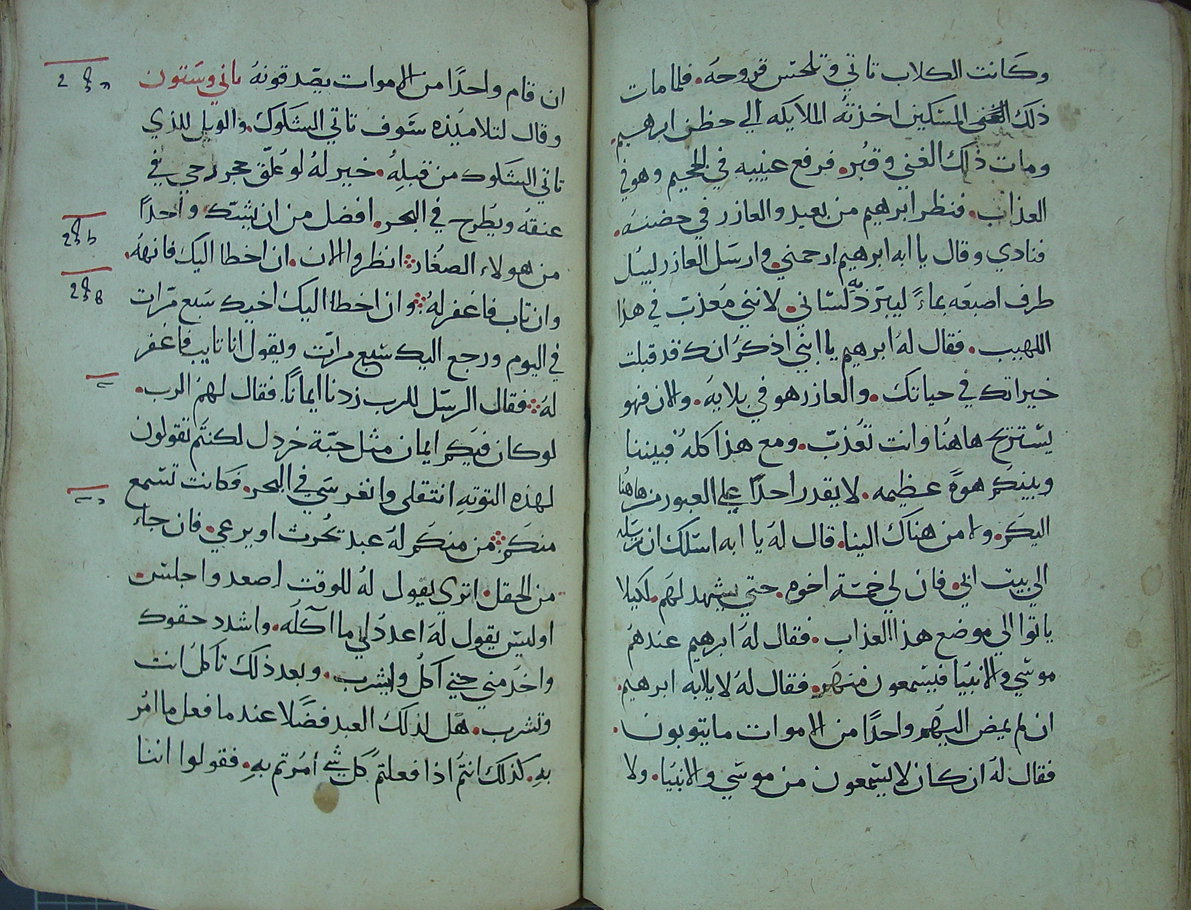 وكانت الكلاب تاتي وتلحس قروحه. فلما مات
ذلك المسكين اخذته الملايكه الي حظن ابرهيم.
ومات ذلك الغني وقبر. فرفع عينيه في الجحيم وهو في
العذاب. فنظر ابرهيم من بعيد والعازر في حضنه.
فنادي وقال يا ابه ابرهيم ارحمني وارسل العازر ليبل
طرف اصبعه بماءً ليبرد لساني. لانني معذب في هذا
اللهيب. فقال له ابرهيم يا ابني اذكر انك قد قبلت
خيراتك في حياتك. والعازر هو في بلايه. والان فهو
يستريح هاهنا وانت تعذب. ومع هذا كله فبيننا
وبينكم هوةً عظيمه. لا يقدر احداً علي العبور من هاهنا
اليكم. ولا من هناك الينا. قال له يا ابه اسلك ان ترسله
الي بيت ابي. فان لي خمسة اخوه. حتي يشهد لهم. لكيلا
ياتوا الي موضع هذا العذاب. فقال له ابرهيم عندهم
موسي والانبيا فيسمعون منهم. فقال له لا يا ابه ابرهيم.
ان لم يمض اليهم واحداً من الاموات ما يتوبون.
فقال له ان كان لا يسمعون من موسي والانبيا. ولا
ان قام واحداً من الاموات يصدقونه ثاني وستون
وقال لتلاميذه سوف تاتي الشكوك. والويل للذي
تاتي الشكوك من قبله. خير له لو علق حجر رحي في
عنقه ويطرح في البحر. افضل من ان يشك واحداً
من هولاء الصغار انظروا الان. ان اخطا اليك فانهه.
وان تاب فاغفر له وان اخطا اليك اخيك سبع مرات
في اليوم ورجع اليك سبع مرات ويقول انا تايب فاغفر
له فقال الرسل للرب زدنا ايمانًا. فقال لهم الرب.
لو كان فيكم ايمان مثل حبة خردل لكنتم تقولون
لهذه التوته انتقلي وانغرسي في البحر. فكانت تسمع
منكم من منكم له عبد يحرث او يرعي. فان جاء
من الحقل. اتري يقول له للوقت اصعد واجلس.
اوليس يقول له اعدد لي ما آكله. واشدد حقوك
واخدمني حتي آكل واشرب. وبعد ذلك تاكل انت
وتشرب. هل لذلك العبد فضلا عندما فعل ما امر
به. كذلك انتم اذا فعلتم كل شي أمرتم به. فقولوا اننا